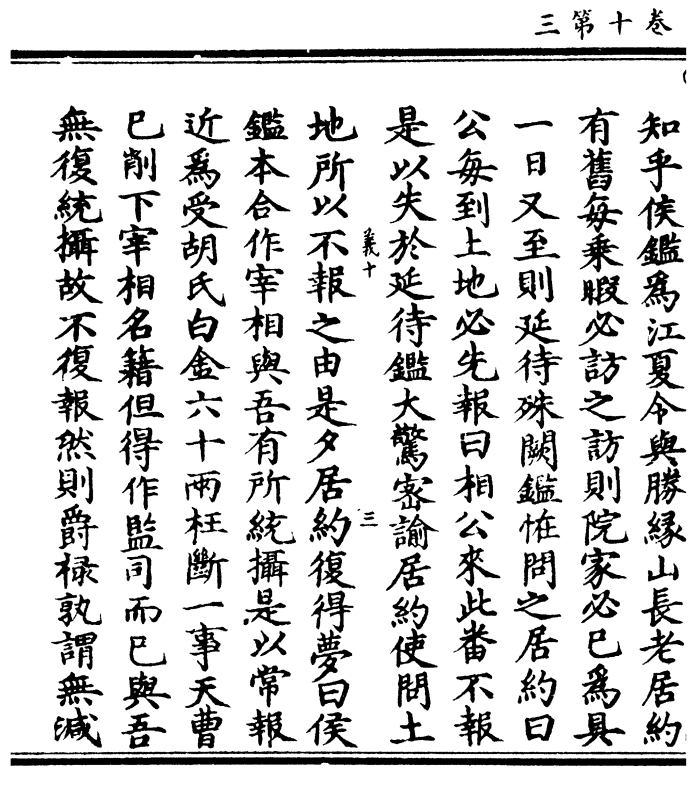 卷十第三
知乎侯鑑爲江夏令與勝緣山長老居約
有舊每乘暇必訪之訪則院家必已爲具
一日又至則延待殊闕鑑恠問之居約曰
公每到土地必先報曰相公來此番不報
是以失於延待鑑大驚密諭居約使問土
義十
三
地所以不報之由是夕居約復得夢曰侯
鑑本合作宰相與吾有所統攝是以常報
近爲受胡氏白金六十兩枉斷一事天曹
已削下宰相名籍但得作監司而已與吾
無復統攝故不復報然則爵祿孰謂無減